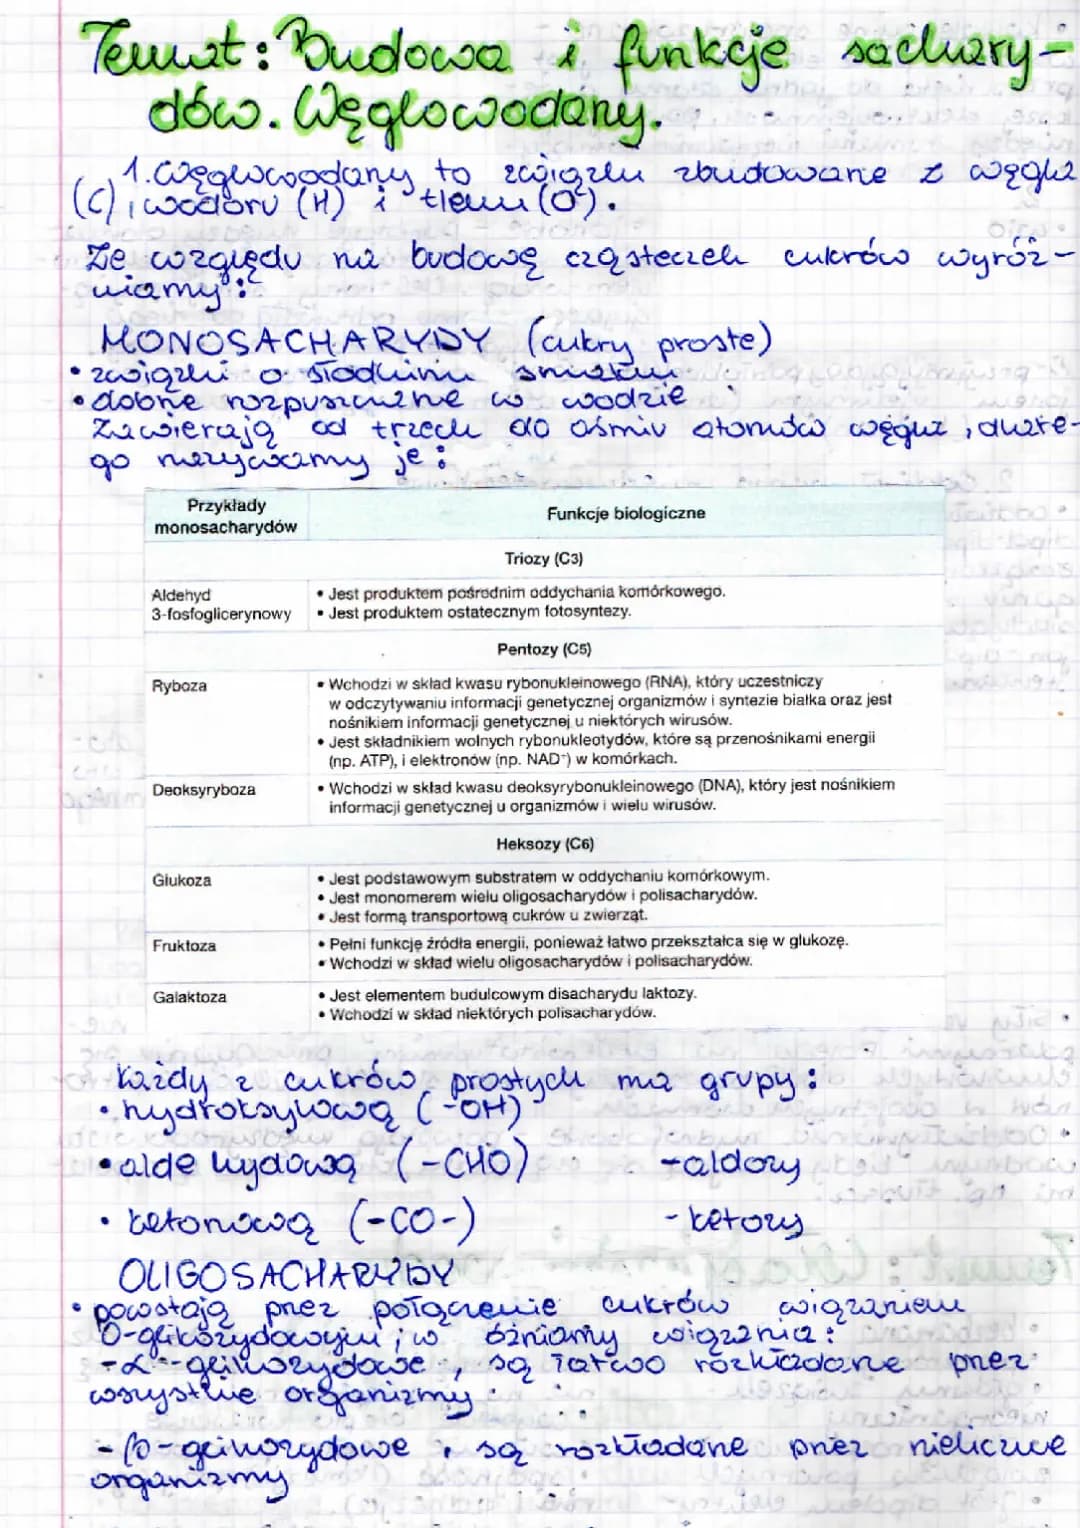 Temat: Budowa i funkcje sachary-
dów. Węglowodany.
1. Węglowodany to związki zbudowane z węgla
(C), wodoru (H) i tlenu (O).
Ze względu na budowę cząsteczek cukrów wyróż-
niamy:
MONOSACHARYDY (cukry proste)
• związki o słodkim smaku
• dobrze rozpuszczalne w wodzie
Zawierają od trzech do ośmiu atomów węgla, dlate-
go nazywamy je:
Przykłady monosacharydów Funkcje biologiczne
Triozy (C3)
Aldehyd • Jest produktem pośrednim oddychania komórkowego.
3-fosfoglicerynowy • Jest produktem ostatecznym fotosyntezy.
Pentozy (C5)
Ryboza • Wchodzi w skład kwasu rybonukleinowego (RNA), który uczestniczy
w odczytywaniu informacji genetycznej organizmów i syntezie białka oraz jest
nośnikiem informacji genetycznej u niektórych wirusów.
• Jest składnikiem wolnych rybonukleotydów, które są przenośnikami energii
(np. ATP), i elektronów (np. NAD⁺) w komórkach.
Deoksyryboza • Wchodzi w skład kwasu deoksyrybonukleinowego (DNA), który jest nośnikiem
informacji genetycznej u organizmów i wielu wirusów.
Heksozy (C6)
Glukoza • Jest podstawowym substratem w oddychaniu komórkowym.
• Jest monomerem wielu oligosacharydów i polisacharydów.
• Jest formą transportową cukrów u zwierząt.
Fruktoza • Pełni funkcję źródła energii, ponieważ łatwo przekształca się w glukozę.
• Wchodzi w skład wielu oligosacharydów i polisacharydów.
Galaktoza • Jest elementem budulcowym disacharydu laktozy.
• Wchodzi w skład niektórych polisacharydów.
Każdy z cukrów prostych ma grupy:
• hydroksylową (-OH)
• aldehydową (-CHO) - aldozy
• ketonową (-CO-) - ketozy
OLIGOSACHARYDY
• powstają przez połączenie cukrów wiązaniem
O-glikozydowym; w óżniamy wiązania:
- α-glikozydowe, są łatwo rozkładane przez
wszystkie organizmy
- β-glikozydowe, są rozkładane przez nieliczne
organizmy